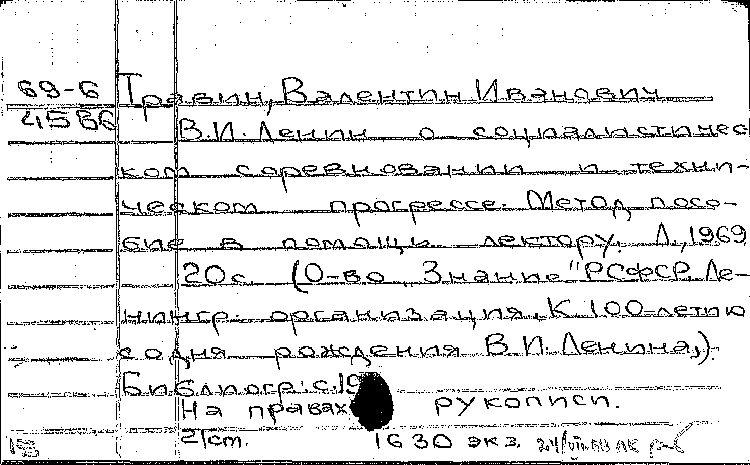 69-6 Травин, Валентин Иванович
4586 В.И. Ленин о социалистичес
ком соревновании и техни-
ческом прогрессе. Метод. посо-
бие в помощь лектору. Л., 1969
20с. (О-во "Знание" РСФСР. Ле-
нингр. организация. К 100-летию
со дня рождения В.И. Ленина).
Библиогр: с.19
На правах рукописи.
2/ст. 1630 экз.